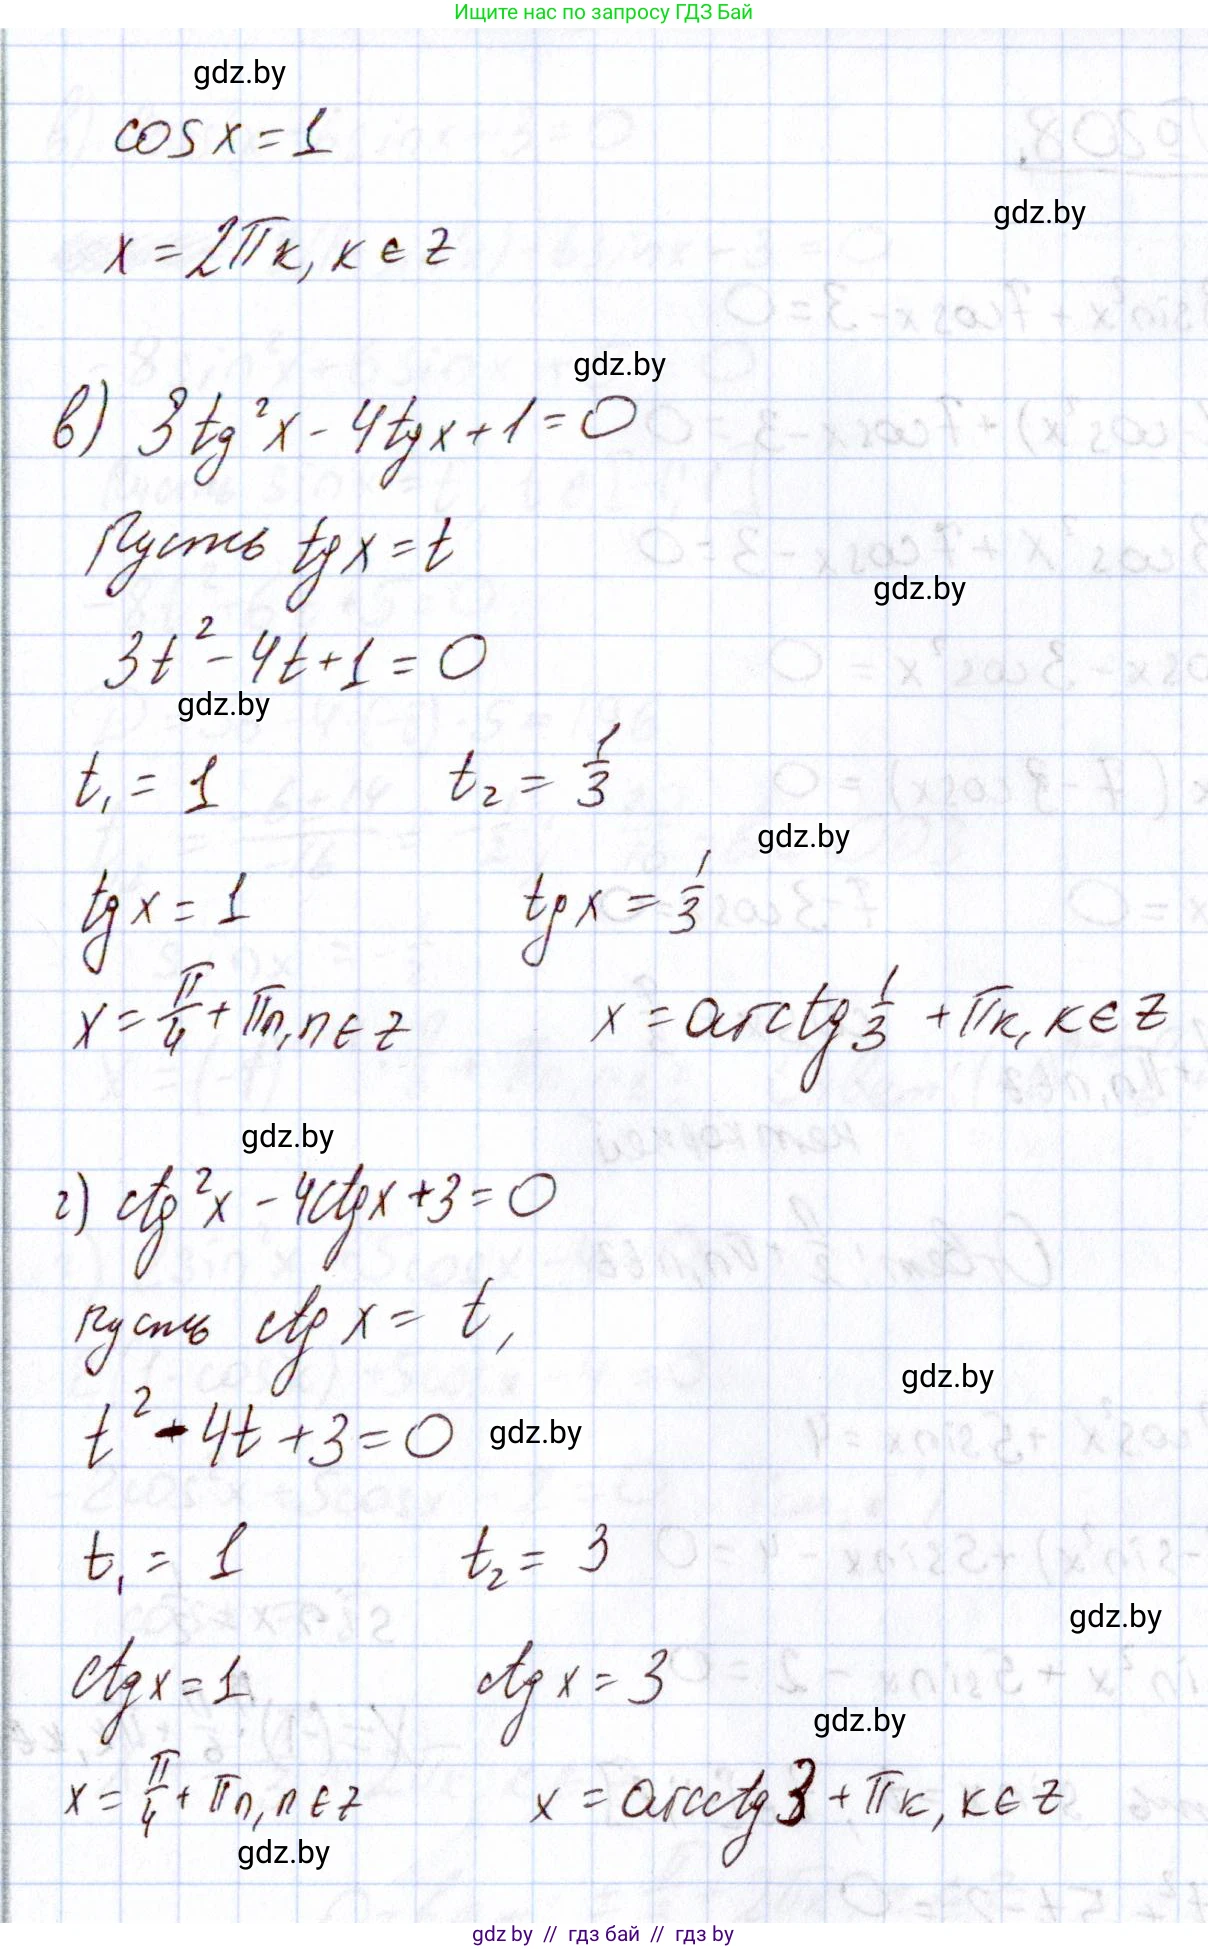 Ищите нас по запросу ГДЗ Бай
gdz.by
cos x = 1
gdz.by
x = 2πк, к ∈ z
gdz.by
в) 3tg²x - 4tgx + 1 = 0
Пусть tgx = t
gdz.by
3t² - 4t + 1 = 0
gdz.by
t₁ = 1 t₂ = 1/3
gdz.by
tgx = 1 tgx = 1/3
x = π/4 + πn, n ∈ z x = arctg 1/3 + πк, к ∈ z
gdz.by
г) ctg²x - 4ctgx + 3 = 0
пусть ctg x = t,
gdz.by
t² - 4t + 3 = 0 gdz.by
t₁ = 1 t₂ = 3
gdz.by
ctgx = 1 ctgx = 3
gdz.by
x = π/4 + πn, n ∈ z x = arcctg 3 + πк, к ∈ z
gdz.by
gdz.by // гдз бай // гдз by